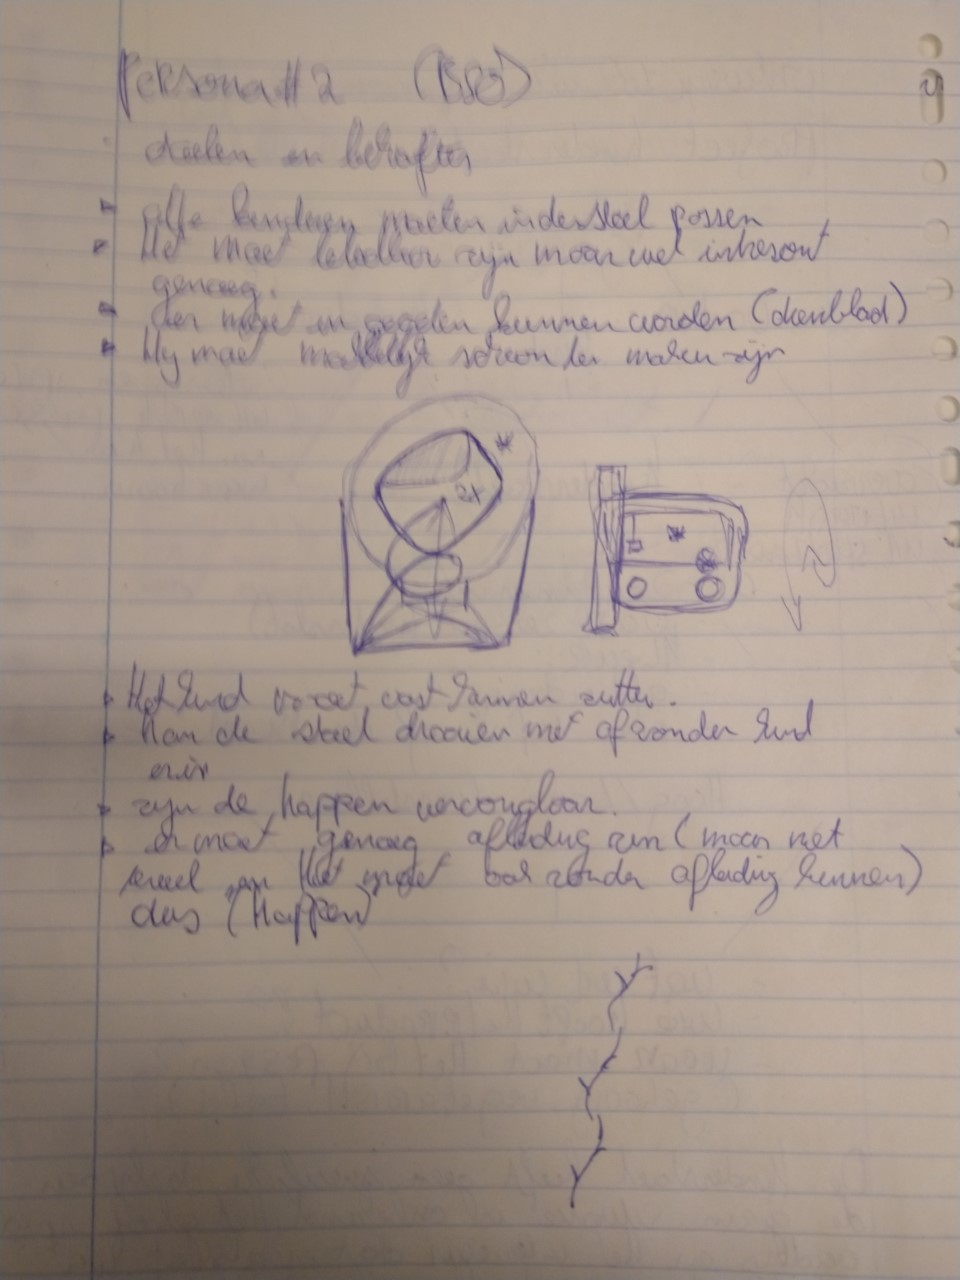 Persona #2 (BSO)
doelen en behoeften
alle kinderen moeten in de stoel passen
Het moet betaalbaar zijn maar wel interesant
genoeg.
Er moet in gegeten kunnen worden (dienblad)
Hij moet makkelijk schoon te maken zijn
2x
Het kind moet vast kunnen zitten.
Kan de stoel draaien met of zonder kind
erin
zijn de happen vervangbaar.
er moet genoeg afleiding zijn (maar niet
teveel en Het moet ook zonder afleiding kunnen)
dus (Happen)